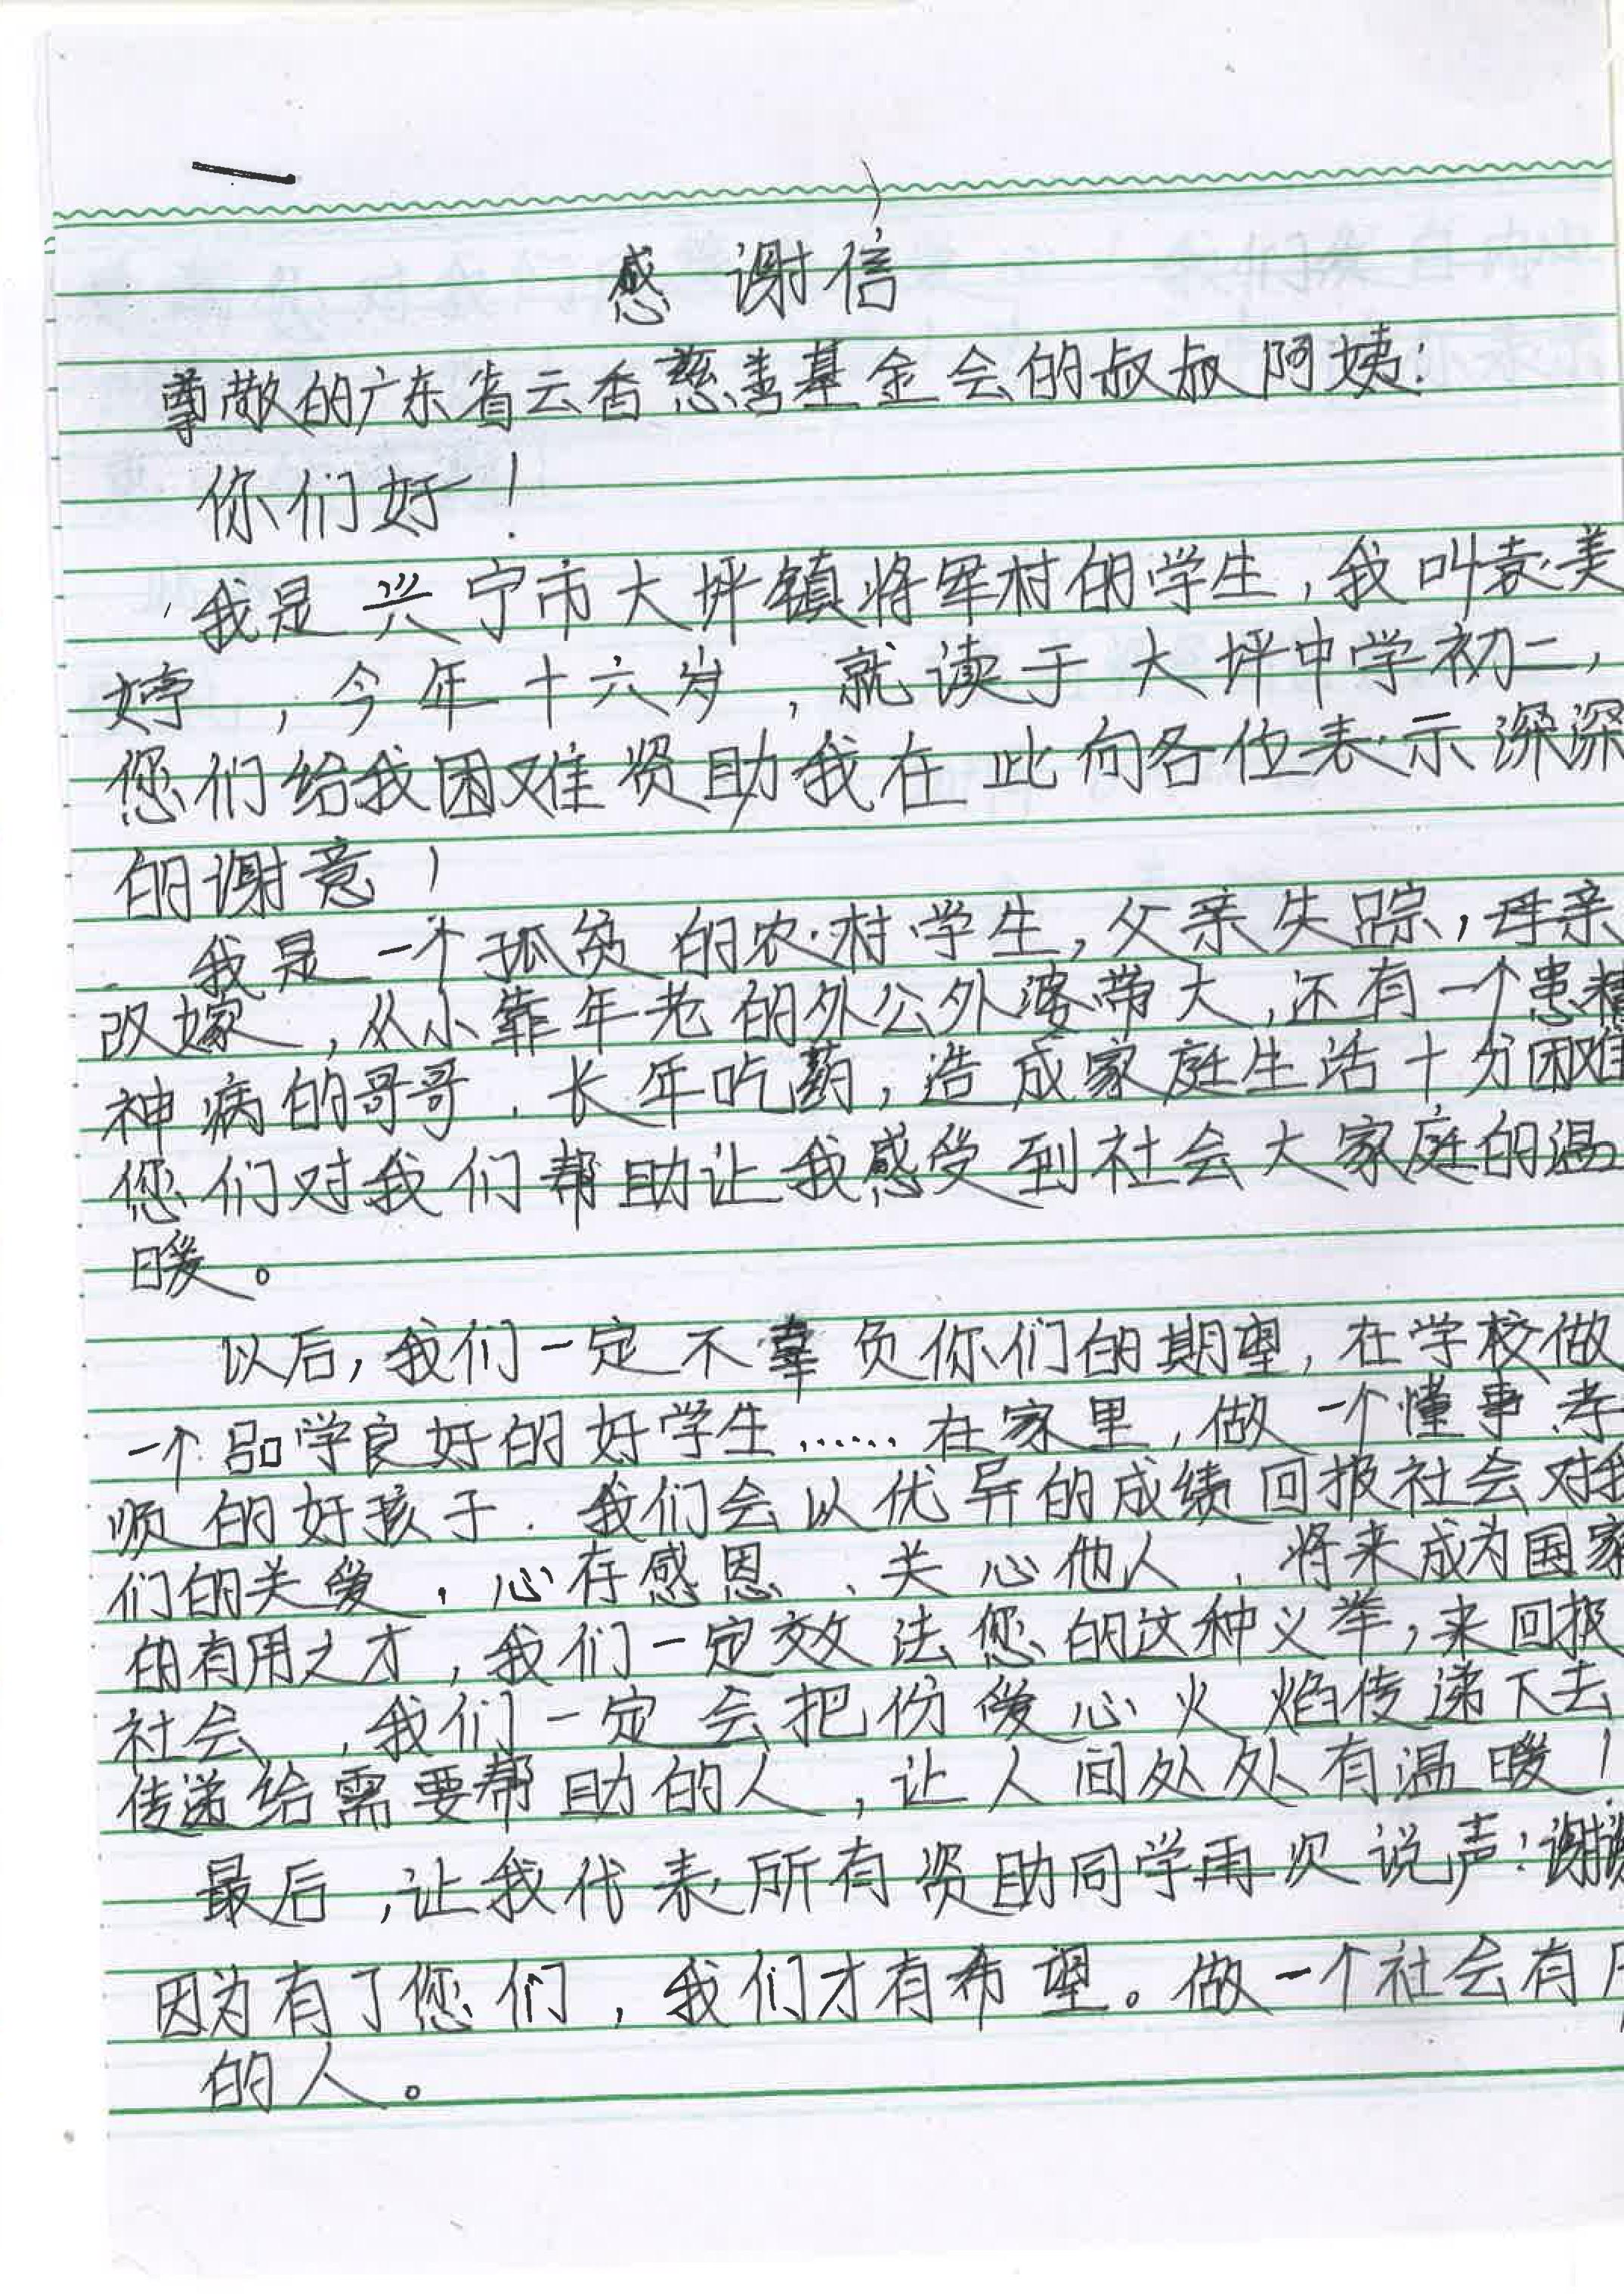 感谢信
尊敬的广东省云香慈善基金会的叔叔阿姨:
你们好!
我是兴宁市大坪镇将军村的学生,我叫袁美
婷,今年十六岁,就读于大坪中学初二,
您们给我困难资助我在此向各位表示深深
的谢意!
我是一个孤贫的农村学生,父亲失踪,母亲
改嫁,从小靠年老的外公外婆带大,还有一个患精
神病的哥哥.长年吃药,造成家庭生活十分困难
您们对我们帮助让我感受到社会大家庭的温
暖。
以后,我们一定不辜负你们的期望,在学校做
一个品学良好的好学生……在家里,做一个懂事、孝
顺的好孩子.我们会以优异的成绩回报社会对我
们的关爱,心存感恩、关心他人,将来成为国家
的有用之才,我们一定效法您的这种义举,来回报
社会,我们一定会把份爱心火焰传递下去
传递给需要帮助的人,让人间处处有温暖!
最后,让我代表所有资助同学再次说声:谢谢
因为有了您们,我们才有希望。做一个社会有
的人。